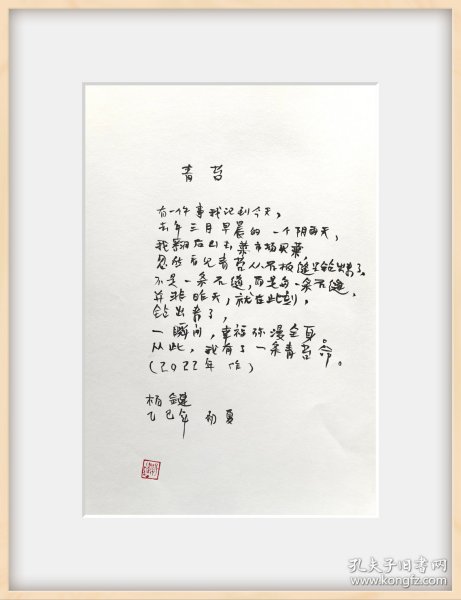 青苔
有一件事我记到今天，
去年三月早晨的一个阴雨天，
我蹲在 菜市场买菜，
忽然看见青苔从石板缝里钻出来了。
不是一条石缝，而是每一条石缝，
并非昨天，就在此刻，
钻出来了，
一瞬间，幸福弥漫全身。
从此，我有了一条青苔命。
（2022年作）
柏健
乙巳年 初夏
孔夫子旧书网
www.kongfz.com